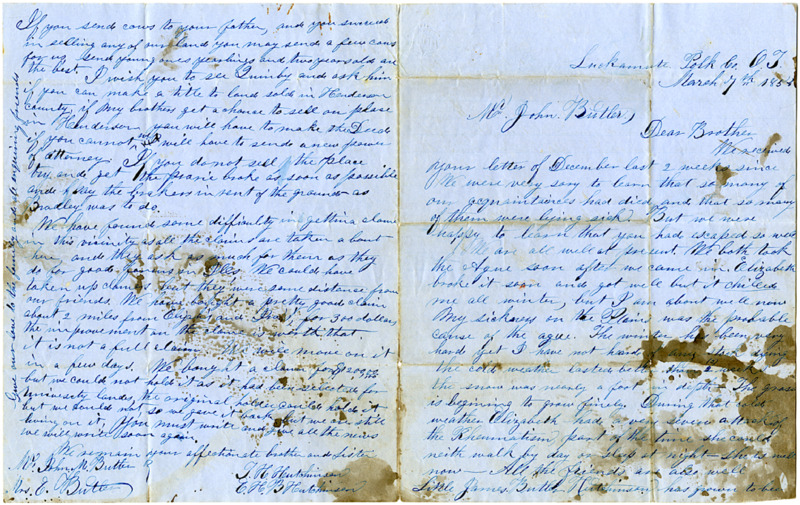 Luckamute Polk Co. O. T.
March 7th 185
Mr John Butler,
Dear Brother
We received
your letter of December last 2 weeks since
We were very sory to learn that so many of
our acquaintances had died, and that so many
of them were lying sick. But we were
happy to learn that you had escaped so well
We are all well at present. We both took
the Ague soon after we came in. Elizabeth
broke it soon and got well but it chilled
me all winter, but I am about well now
My sickness on the Plains was the probable
cause of the ague. The winter has been very
hard yet I have not heard of any
the cold weather lasted better than 2 weeks
the snow was nearly a foot in depth. The grass
is begining to grow finely. During the cold
weather Elizabeth had a very severe attack of
the Rheumatism, part of the time she could
neith walk by day or sleep at night she is well
now — All the friends are also well
Little James Butler Hutchinson has grown to be
If you send cows to your father, and you succeed
in selling any of our land you may send a few cows
for us send young ones yearlings and two years old are
the best. I wish you to see Quinby and ask him
if you can make a title to land sold in Henderson
County, if my brothers get a chance to sell our place
in Henderson you will have to make the Deed
if you cannot we will have to send a new power
of attorney. If you do not sell the place
try and get the prairie broke as soon as possible
and pay the breakers in rent of the ground as
Bradley was to do.
We have found some difficulty in getting a claim
in this vicinity as all the claims are taken a bout
here and they ask as much for them as they
do for good farms in Ills. We could have
taken up claims but they were some distance from
our friends. We have bought a pretty good claim
about 2 miles from for 300 dollars
the improvement on the claim is worth that
it is not a full claim. We will move on it
in a few days. We bought a claim for
but we could not hold it as it had been selected for
University lands, the original holder could hold it
but we could not so we gave it back but we are still
living on it. You must write and give all the news
we will write soon again.
We remain your affectionate brother and sister
Mr. John M. Butler
Mrs. E. Butler
J. H. Hutchinson
E. H. B. Hutchinson
Give our love to the family and all enquiring friends